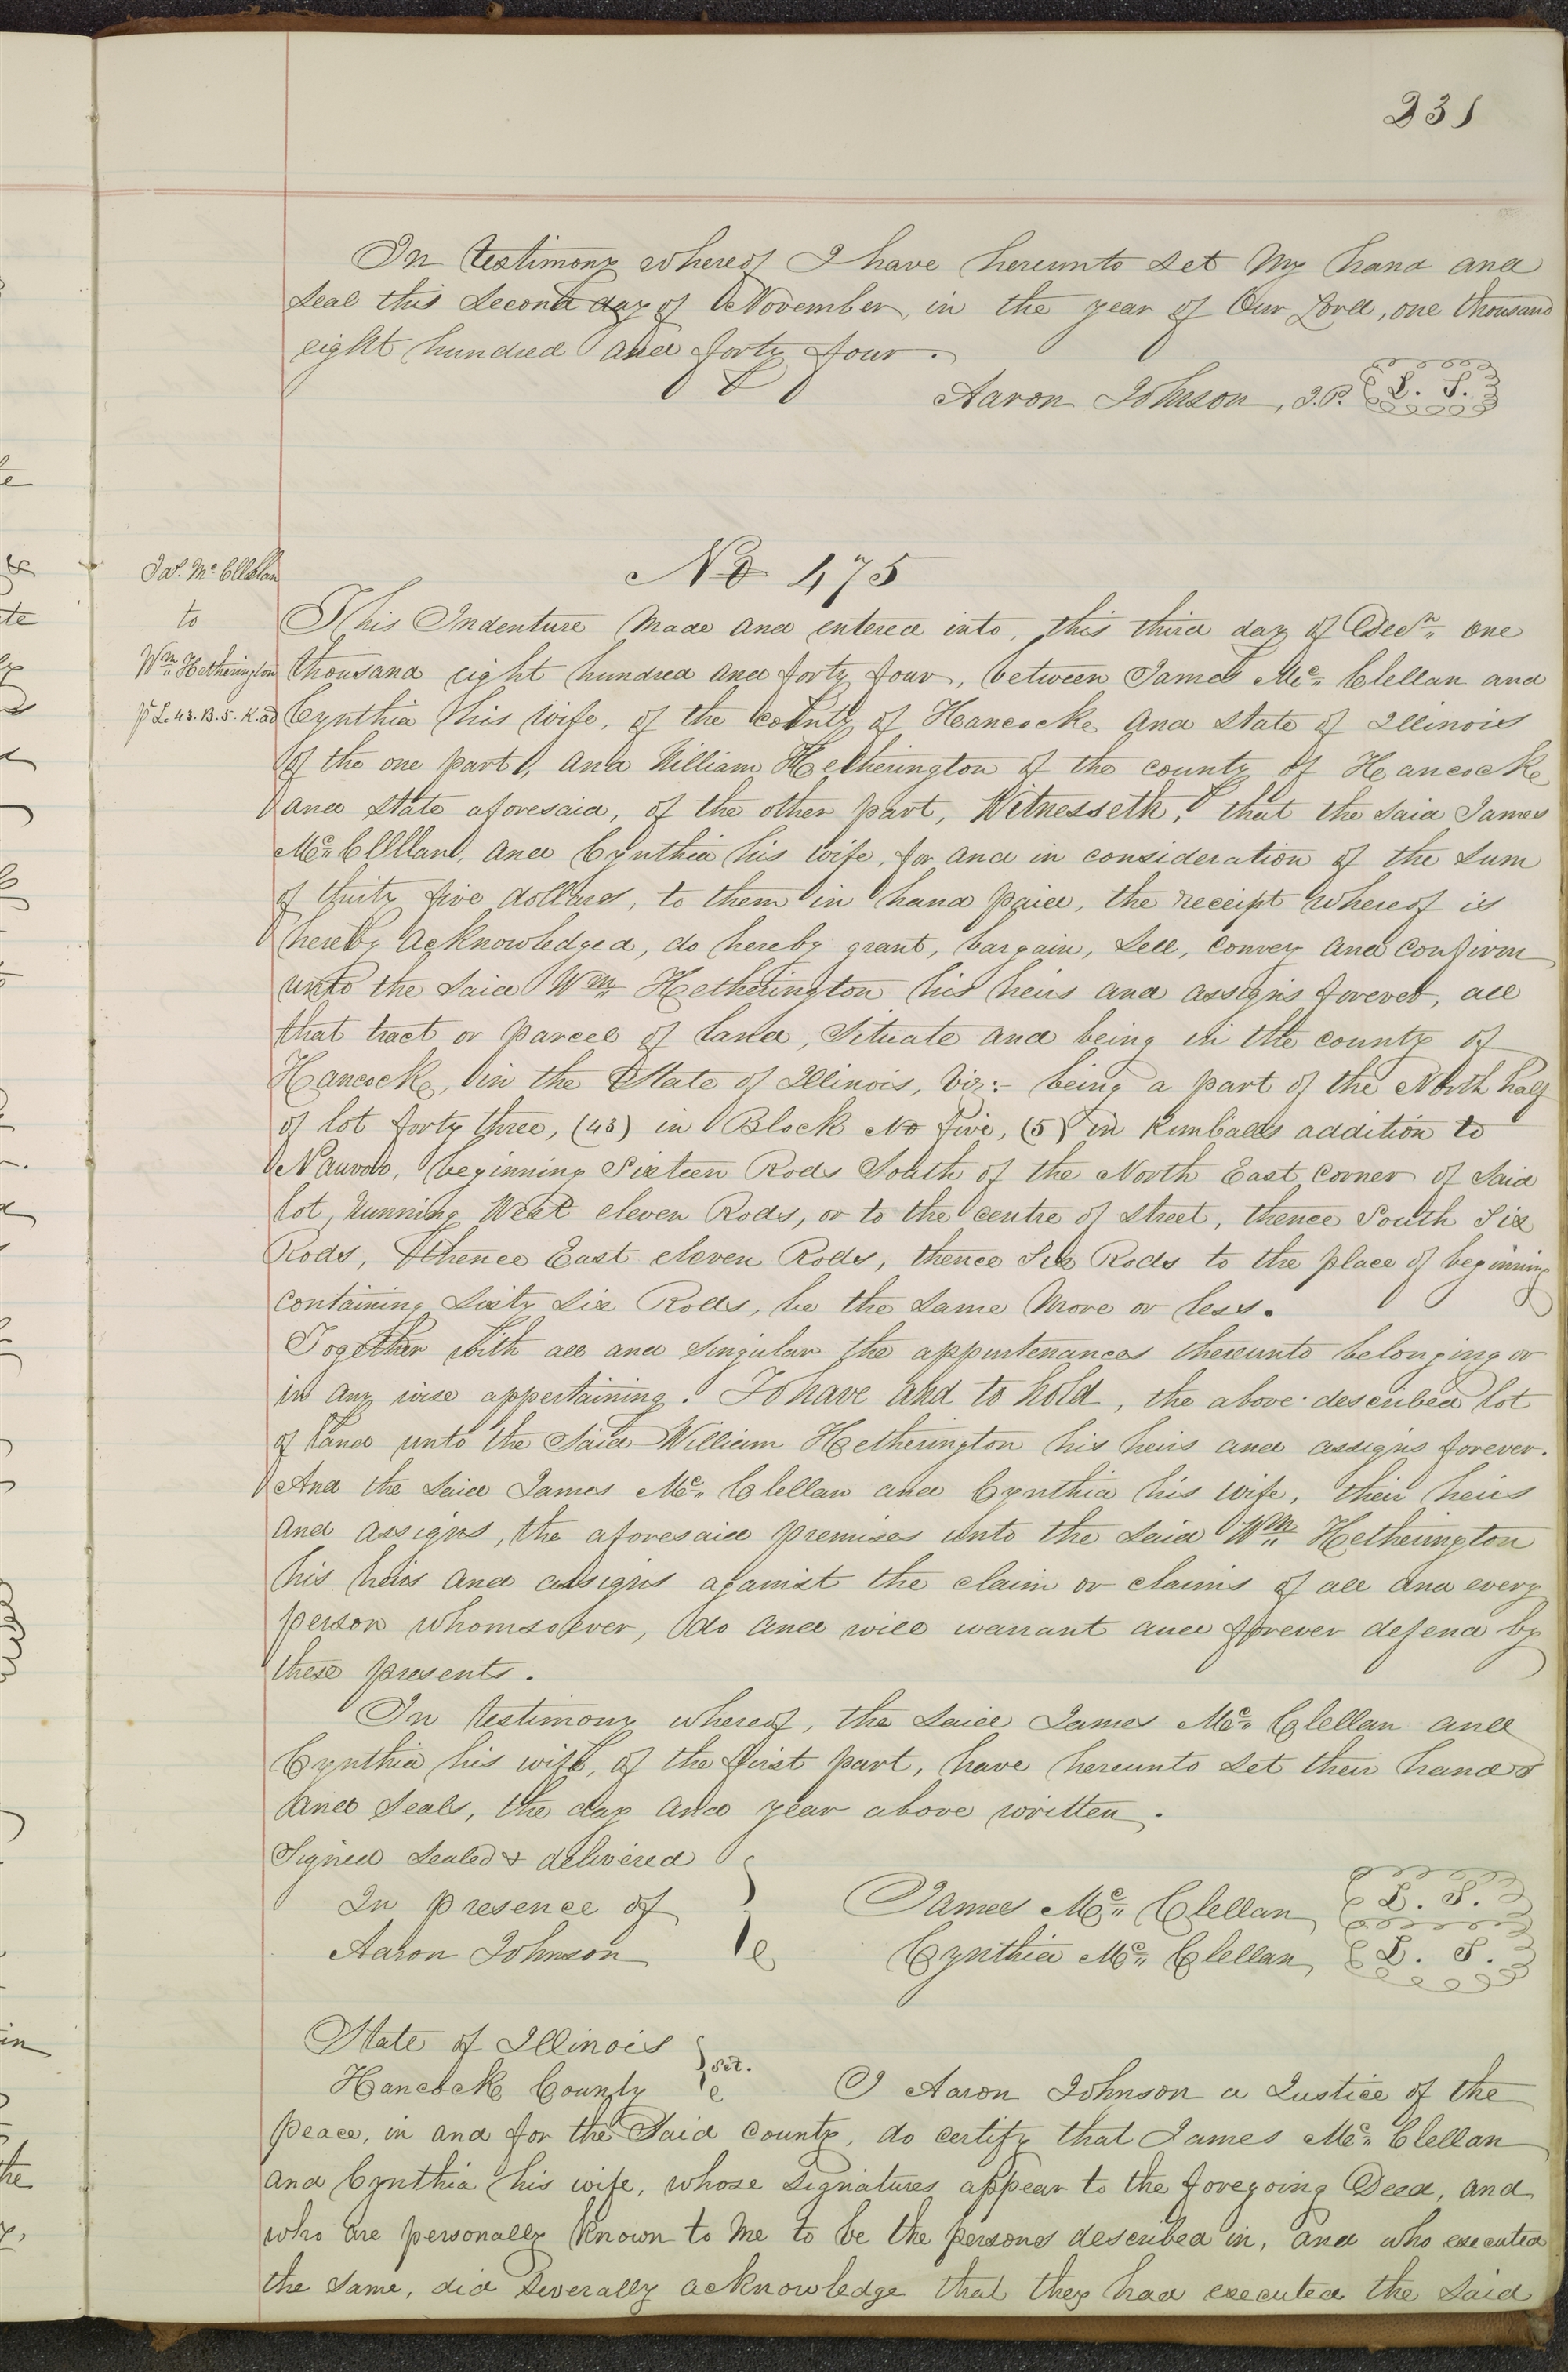 231
In testimony whereof I have hereunto set my hand and
seal this second day of November, in the year of Our Lord, one thousand
eight hundred and forty four.
Aaron Johnson, J.P. L. S.
No 475
Jas. Mc Clellan
to
Wm Hetherington
pt L. 43. B. 5. K. ad
This Indenture made and entered into, this third day of Decr, one
thousand eight hundred and forty four, between James Mc Clellan and
Cynthia his wife, of the county of Hancock and State of Illinois
of the one part, and William Hetherington of the county of Hancock
and State aforesaid, of the other part, Witnesseth, that the said James
Mc Clellan, and Cynthia his wife, for and in consideration of the sum
of thirty five dollars, to them in hand paid, the receipt whereof is
hereby acknowledged, do hereby grant, bargain, sell, convey and confirm
unto the said Wm Hetherington his heirs and assigns forever, all
that tract or parcel of land, situate and being in the county of
Hancock, in the State of Illinois, viz:- being a part of the North half
of lot forty three, (43) in Block No five, (5) in Kimballs addition to
Nauvoo, beginning Sixteen Rods South of the North East corner of said
lot, running West eleven Rods, or to the centre of street, thence South Six
Rods, thence East eleven Rods, thence Six Rods to the place of beginning
containing Sixty Six Rods, be the same more or less.
Together with all and singular the appurtenances thereunto belonging or
in any wise appertaining. To have and to hold, the above described lot
of land unto the said William Hetherington his heirs and assigns forever.
And the said James Mc Clellan and Cynthia his wife, their heirs
and assigns, the aforesaid premises unto the said Wm Hetherington
his heirs and assigns against the claim or claims of all and every
person whomsoever, do and will warrant and forever defend by
these presents.
In testimony whereof, the said James Mc Clellan and
Cynthia his wife, of the first part, have hereunto set their hands
and seals, the day and year above written.
Signed sealed & delivered
In presence of James Mc Clellan L. S.
Aaron Johnson Cynthia Mc Clellan L. S.
State of Illinois
Hancock County sct. I Aaron Johnson a Justice of the
peace, in and for the said county, do certify that James Mc Clellan
and Cynthia his wife, whose signatures appear to the foregoing Deed, and
who are personally known to me to be the persons described in, and who executed
the same, did severally acknowledge that they had executed the said